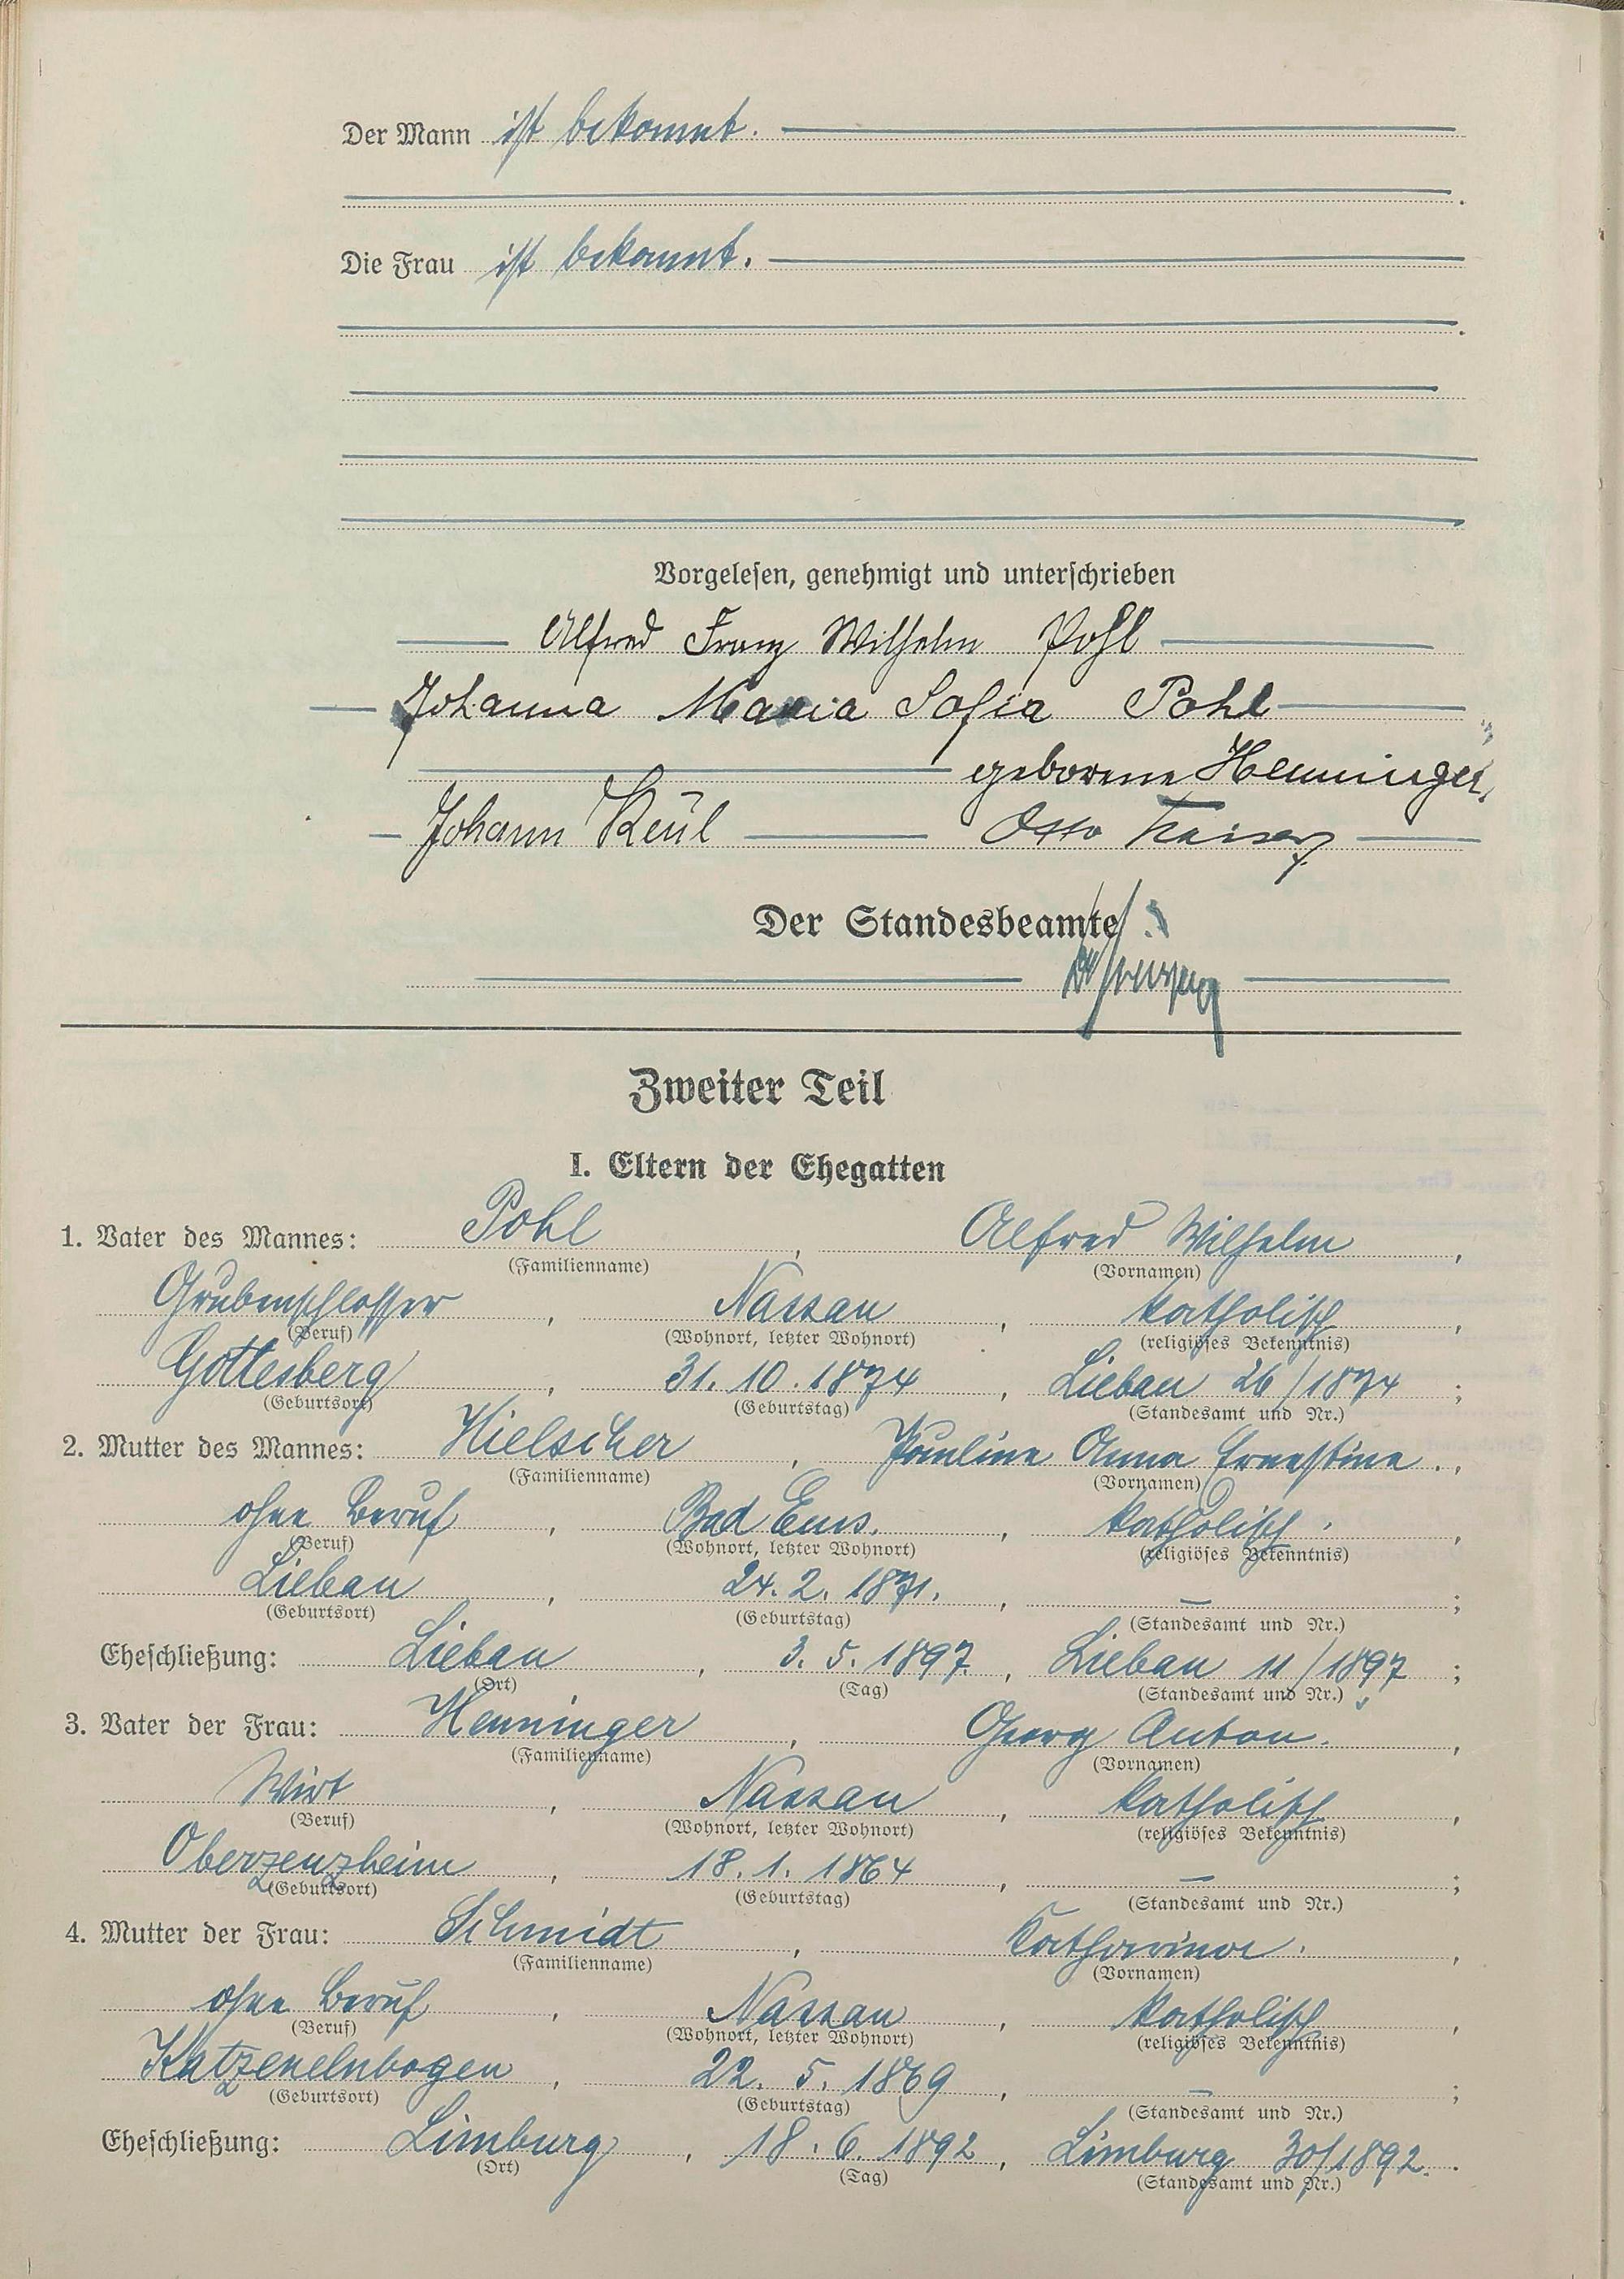 Der Mann ist bekannt.
Die Frau ist bekannt.
Vorgelesen, genehmigt und unterschrieben
Alfred Franz Wilhelm Pohl
Johanna Maria Sofia Pohl
geborene Henninger,
Johann Keul Otto Kaiser
Der Standesbeamte
Zweiter Teil
I. Eltern der Ehegatten
1. Vater des Mannes: Pohl, Alfred Wilhelm,
(Familienname) (Vornamen)
Grubenschlosser, Nassau, katholisch,
(Beruf) (Wohnort, letzter Wohnort) (religiöses Bekenntnis)
Gottesberg, 31. 10. 1874, Liebau 26/1874;
(Geburtsort) (Geburtstag) (Standesamt und Nr.)
2. Mutter des Mannes: Hielscher, Pauline Anna Ernestine.,
(Familienname) (Vornamen)
ohne Beruf, Bad Ems., katholisch,
(Beruf) (Wohnort, letzter Wohnort) (religiöses Bekenntnis)
Liebau, 24. 2. 1871., —;
(Geburtsort) (Geburtstag) (Standesamt und Nr.)
Eheschließung: Liebau, 3. 5. 1897, Liebau 11/1897;
(Ort) (Tag) (Standesamt und Nr.)
3. Vater der Frau: Henninger, Georg Anton.,
(Familienname) (Vornamen)
Wirt, Nassau, katholisch,
(Beruf) (Wohnort, letzter Wohnort) (religiöses Bekenntnis)
Oberzeuzheim, 18. 1. 1864, —;
(Geburtsort) (Geburtstag) (Standesamt und Nr.)
4. Mutter der Frau: Schmidt, Katharina.,
(Familienname) (Vornamen)
ohne Beruf, Nassau, katholisch,
(Beruf) (Wohnort, letzter Wohnort) (religiöses Bekenntnis)
Katzenelnbogen, 22. 5. 1869, —;
(Geburtsort) (Geburtstag) (Standesamt und Nr.)
Eheschließung: Limburg, 18. 6. 1892, Limburg 30/1892.
(Ort) (Tag) (Standesamt und Nr.)